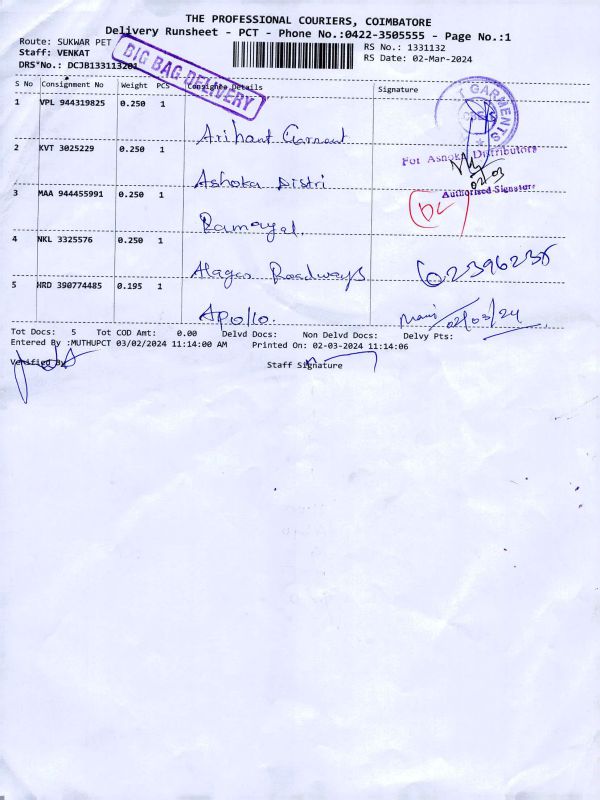 THE PROFESSIONAL COURIERS, COIMBATORE
Delivery Runsheet - PCT - Phone No.:0422-3505555 - Page No.:1
Route: SUKWAR PET
Staff: VENKAT
DRS*No.: DCJB133113201
RS No.: 1331132
RS Date: 02-Mar-2024
BIG BAG DELIVERY
S No Consignment No Weight PCS Consignee Details Signature
1 VPL 944319825 0.250 1
Arihant Garment
GARMENTS
2 KVT 3025229 0.250 1
Ashoka Distri
For Ashoka Distributors
02/03
Authorised Signature
3 MAA 944455991 0.250 1
Ramayal
4 NKL 3325576 0.250 1
Alagar Roadways
5 HRD 390774485 0.195 1
Apollo.
02/03/24
Tot Docs: 5 Tot COD Amt: 0.00 Delvd Docs: Non Delvd Docs: Delvy Pts:
Entered By :MUTHUPCT 03/02/2024 11:14:00 AM Printed On: 02-03-2024 11:14:06
Verified By
Staff Signature